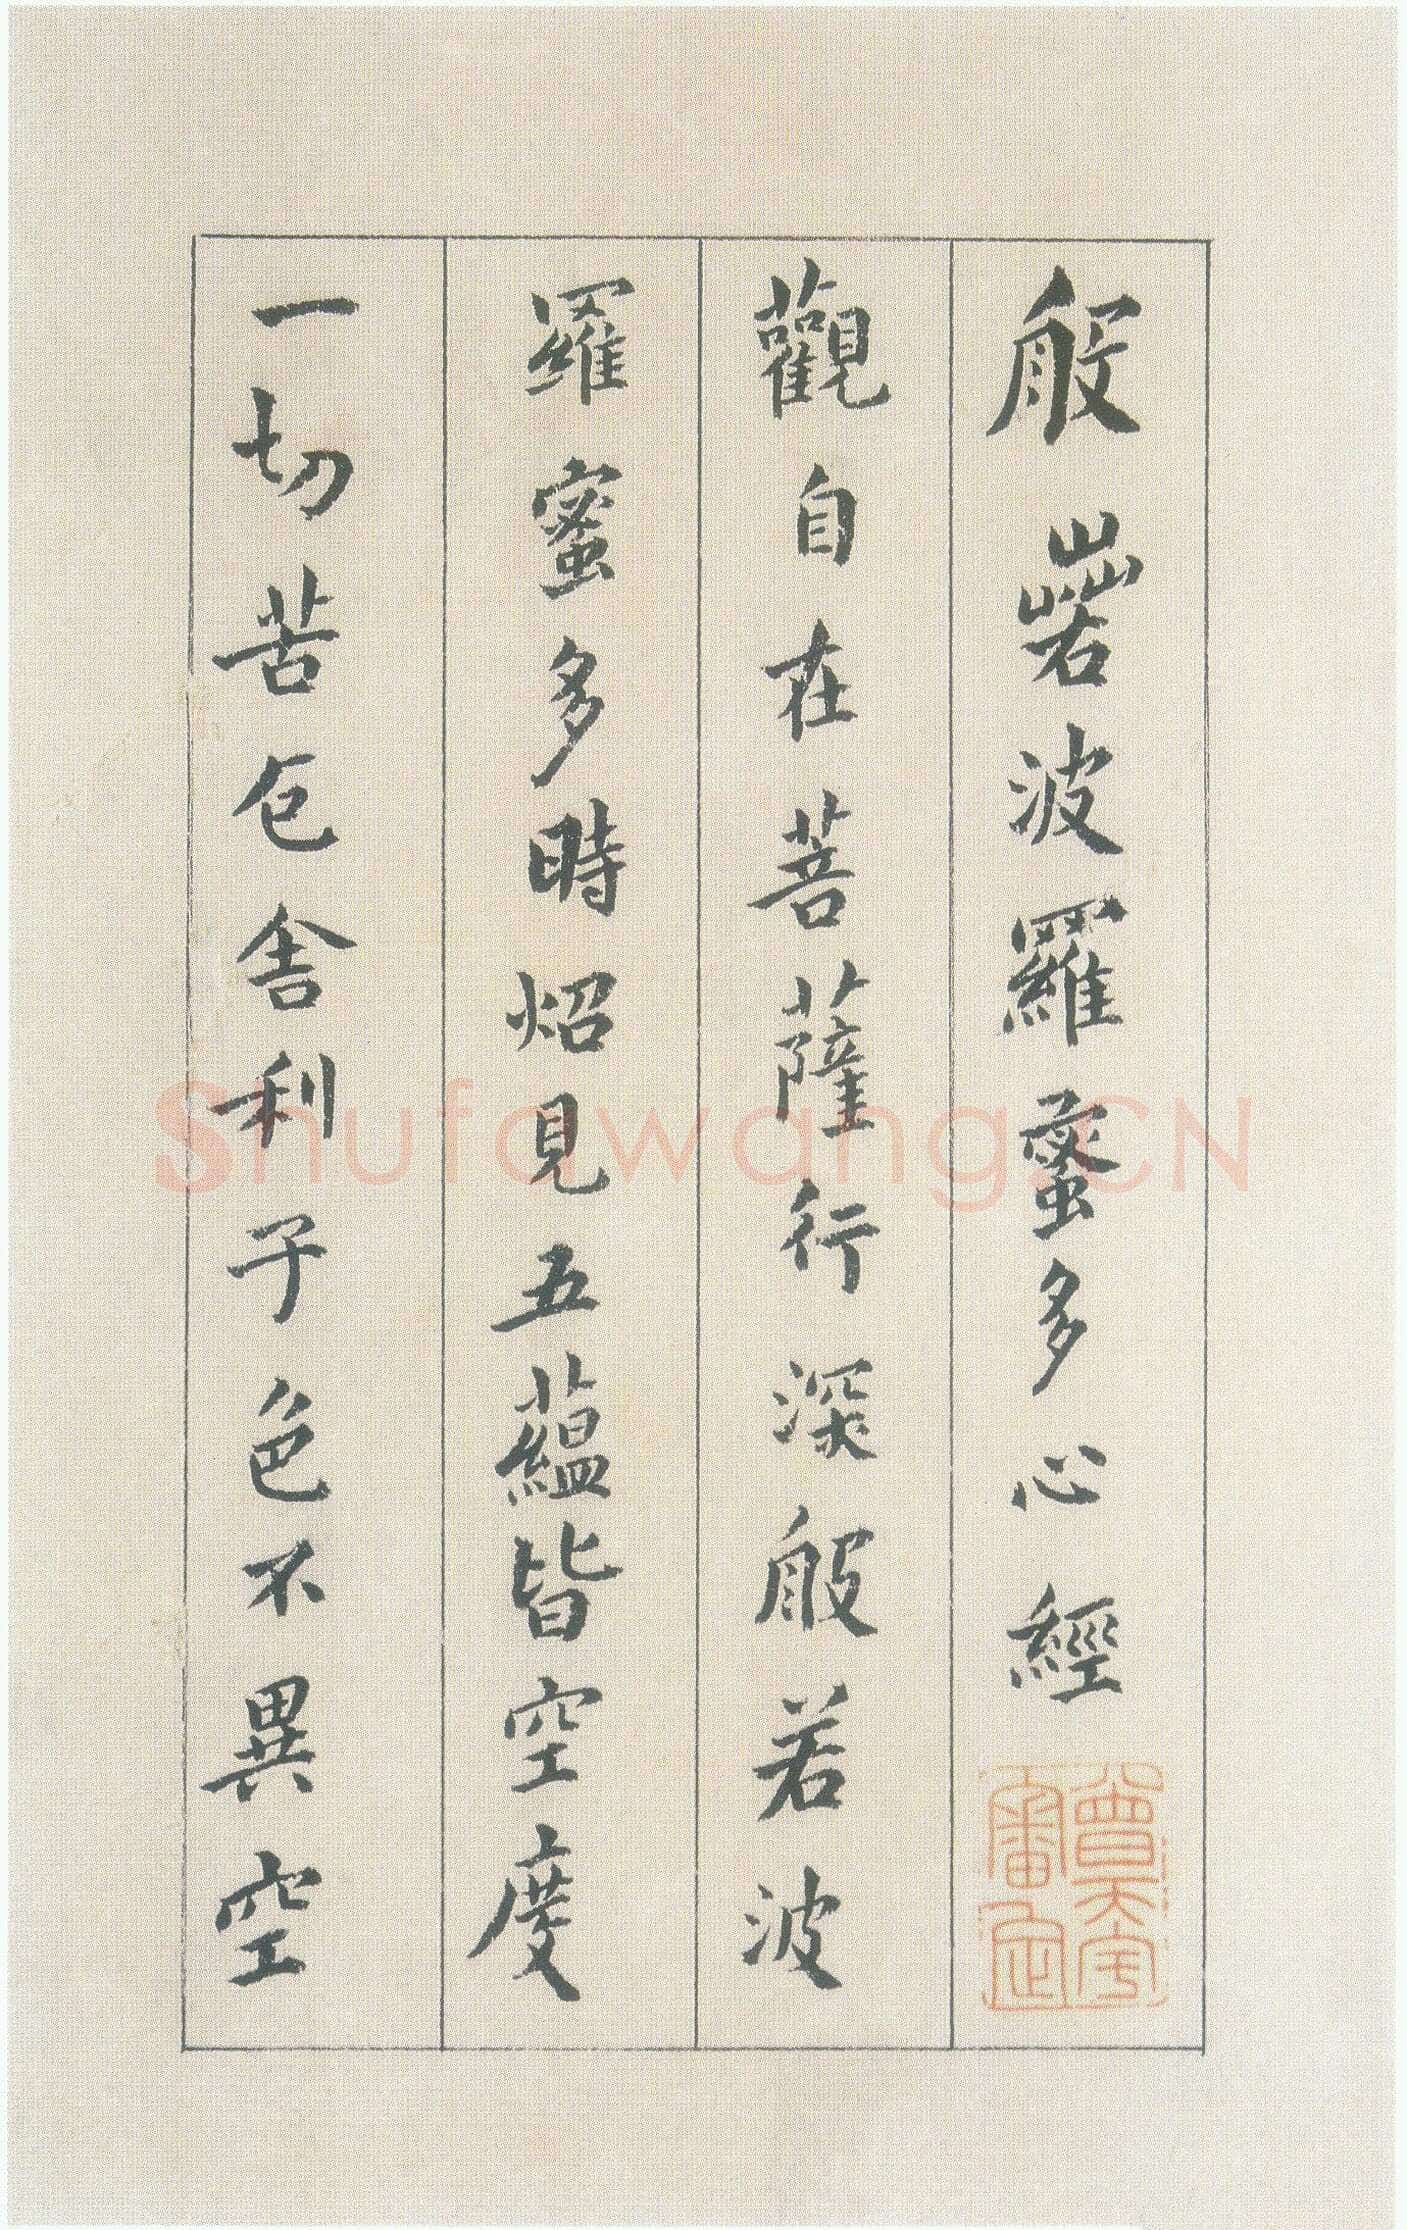 般若波羅蜜多心經
觀自在菩薩行深般若波
羅蜜多時炤見五蘊皆空度
一切苦厄舍利子色不異空
曾天宇
審定
Shufawang.CN